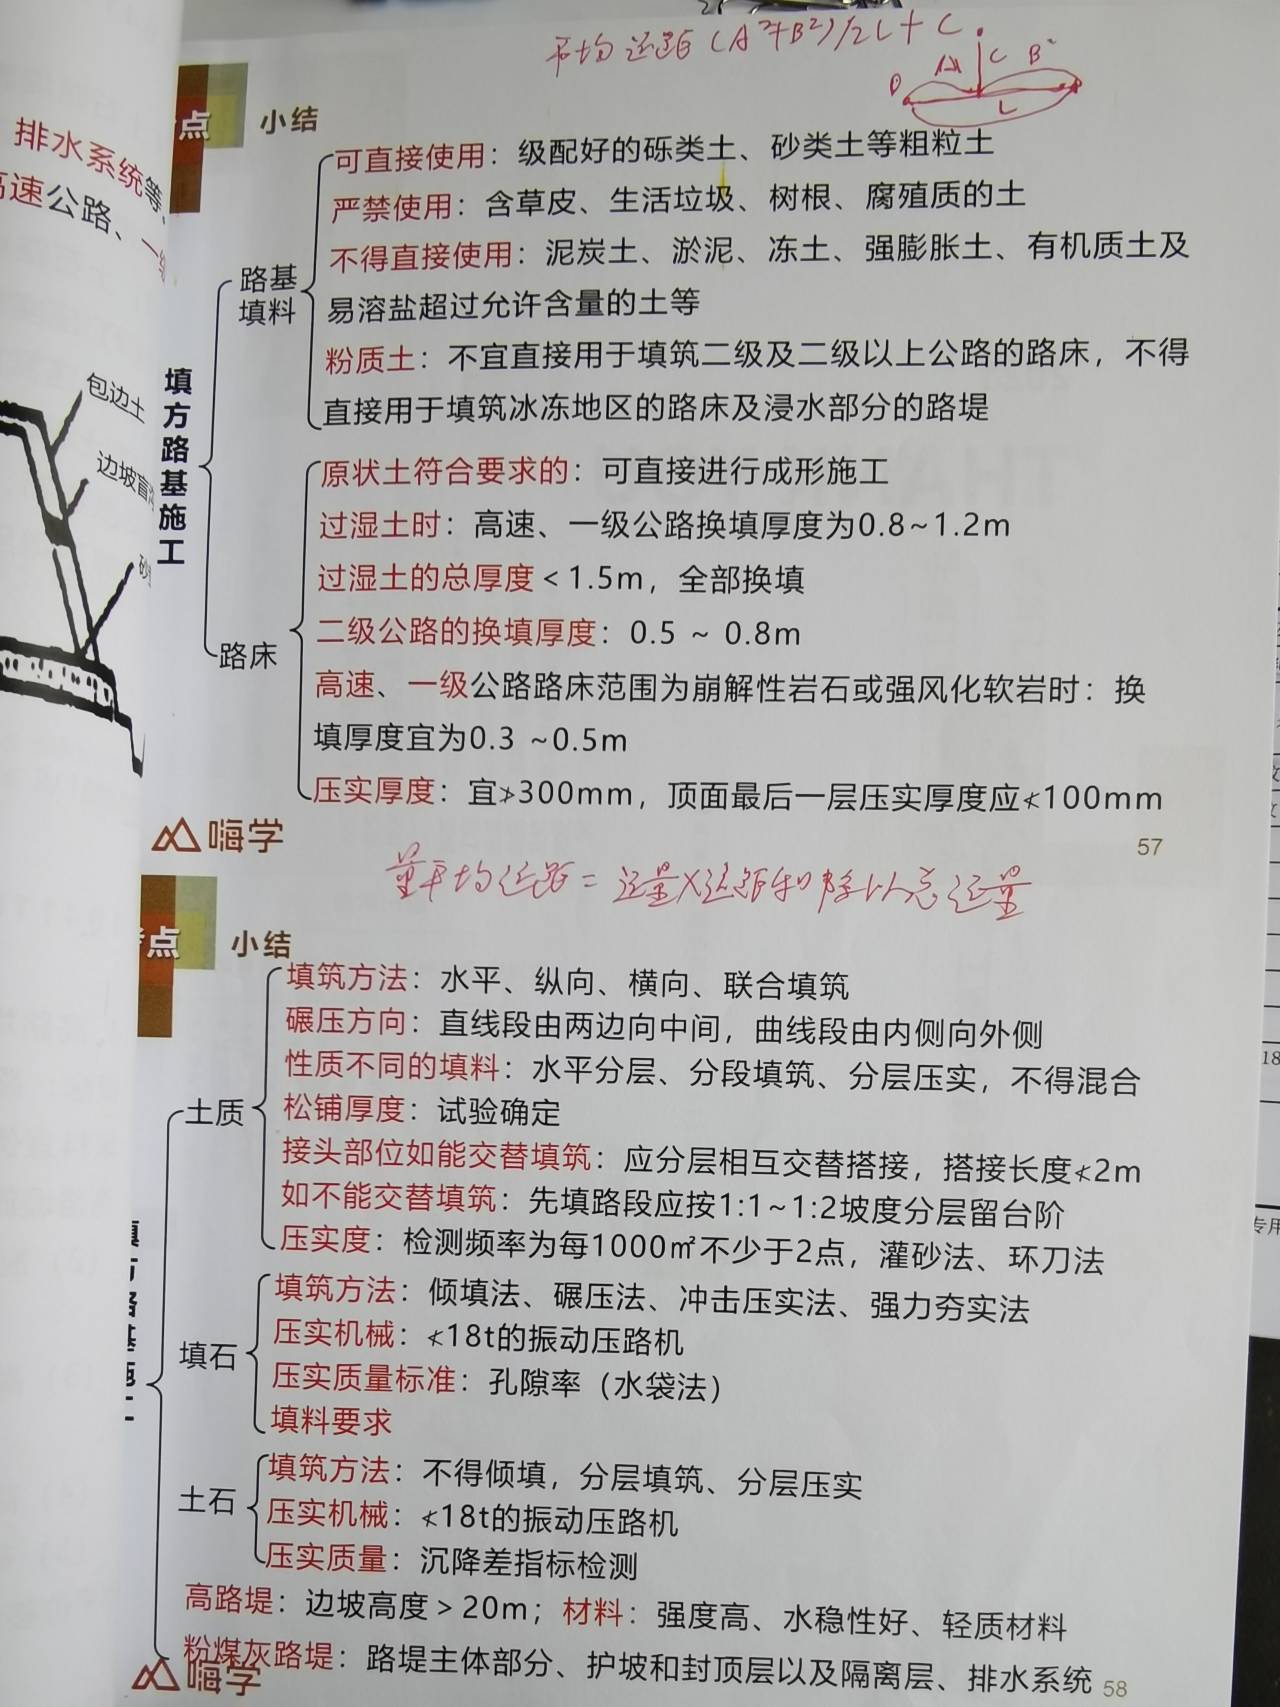 平均运距(A²+B²)/2L+C
A
C
B
L
排水系统等、
高速公路、一级
包边土
边坡盲沟
砂
点
小结
填方路基施工
路基
填料
可直接使用：级配好的砾类土、砂类土等粗粒土
严禁使用：含草皮、生活垃圾、树根、腐殖质的土
不得直接使用：泥炭土、淤泥、冻土、强膨胀土、有机质土及
易溶盐超过允许含量的土等
粉质土：不宜直接用于填筑二级及二级以上公路的路床，不得
直接用于填筑冰冻地区的路床及浸水部分的路堤
路床
原状土符合要求的：可直接进行成形施工
过湿土时：高速、一级公路换填厚度为0.8~1.2m
过湿土的总厚度＜1.5m，全部换填
二级公路的换填厚度：0.5 ~ 0.8m
高速、一级公路路床范围为崩解性岩石或强风化软岩时：换
填厚度宜为0.3 ~0.5m
压实厚度：宜≯300mm，顶面最后一层压实厚度应≮100mm
嗨学
57
量平均运距=运量×运距和除以总运量
考点
小结
填方路基施工
土质
填筑方法：水平、纵向、横向、联合填筑
碾压方向：直线段由两边向中间，曲线段由内侧向外侧
性质不同的填料：水平分层、分段填筑、分层压实，不得混合
松铺厚度：试验确定
接头部位如能交替填筑：应分层相互交替搭接，搭接长度≮2m
如不能交替填筑：先填路段应按1:1~1:2坡度分层留台阶
压实度：检测频率为每1000㎡不少于2点，灌砂法、环刀法
填石
填筑方法：倾填法、碾压法、冲击压实法、强力夯实法
压实机械：≮18t的振动压路机
压实质量标准：孔隙率（水袋法）
填料要求
土石
填筑方法：不得倾填，分层填筑、分层压实
压实机械：≮18t的振动压路机
压实质量：沉降差指标检测
高路堤：边坡高度＞20m；材料：强度高、水稳性好、轻质材料
粉煤灰路堤：路堤主体部分、护坡和封顶层以及隔离层、排水系统
嗨学
58
18
专用